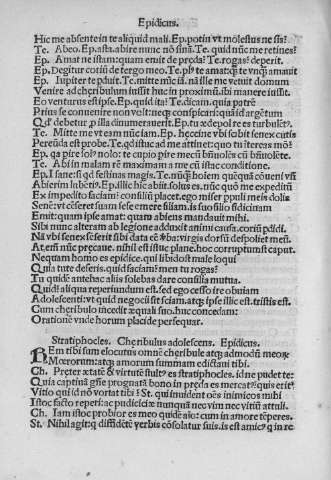 Epidicus.
Hic me absente in te aliquid mali. Ep. potin vt molestus ne sis?
Te. Abeo. Ep. asta. abire nunc nō sinā. Te. quid nūc me retines?
Ep. Amat ne istam: quam emit de pręda? Te. rogas? deperit.
Ep. Degitur coriū de tergo meo. Te. plꝰ te amatqꝫ te vnqꝫ amauit
Ep. Iupiter te pduit. Te. mitte nūc iā. nā ille me vetuit domum
Venire ad cheribulum iussit huc in proximū. ibi manere iussit.
Eo venturus est ipse. Ep. quid ita? Te. dicam. quia patrē
Prius se conuenire non velit: neqꝫ conspicari: quā id argētum
Qd' debetur p illa dinumerauerit. Ep. tu ędepol res turbulēt
Te. Mitte me vt eam nūc iam. Ep. hęccine vbi scibit senex
Pereūda est probe. Te. qd istuc ad me attinet: quo tu itereas mō?
Ep. qa pire solꝰ nolo: te cupio pire mecū bñuolēs cū bñuolēte.
Te. Abi in malam rē maximam a me cū istac conditione.
Ep. I sane: si qd festinas magis. Te. nūqꝫ hoiem quēquā cōueni vn
Abierim lubētiꝰ. Ep. illic hic abiit. solus es. nūc quo me expeditū
Ex impedito faciam: consiliū placet. ego miser ppuli meis dolis
Senē: vt cēseret suam sese emere filiam. is suo filio fidicinam
Emit: quam ipse amat: quam abiens mandauit mihi.
Sibi nunc alteram ab legione adduxit animi causa. coriū pdidi.
Nā vbi senex sēserit sibi data eē verba: virgis dorsū despoliet meū.
At. enī nūc pręcaue. nihil est istuc plane. hoc corruptum est caput.
Nequam homo es epidice. qui libidost male loqui
Quia tute deseris. quid faciam? men tu rogas?
Tu quidē antehac aliis solebas dare consilia mutua.
Quid? aliqua reperiundum est. sed ego cesso ire obuiam
Adolescenti: vt quid negocii sit sciam. atqꝫ ipse illic est. tristis est.
Cum cheribulo incedit ęquali suo. huc concedam:
Orationē vnde horum placide persequar.
Stratiphocles. Cheribulus adolescens. Epidicus.
REm tibi sum elocutus omnē cheribule atqꝫ admodū meoꝝ
Meroꝝum: atqꝫ amorum summam edictaui tibi.
Ch. Pręter ętatē & virtutē stultꝰ es stratiphocles. id ne pudet te:
Quia captiuā gñe prognatā bono in pręda es mercatꝰ: quis erit
Vitio qui id nō vortat tibi? St. qui inuident oēs inimicos mihi
Istoc facto reperi: ac pudiciciæ nunquā nec vim nec vitiū attuli.
Ch. Iam istoc probior es meo quidē aīo: cum in amore tēperes.
St. Nihil agit: qui diffidētē verbis cōsolatur suis. is est amicꝰ q in re